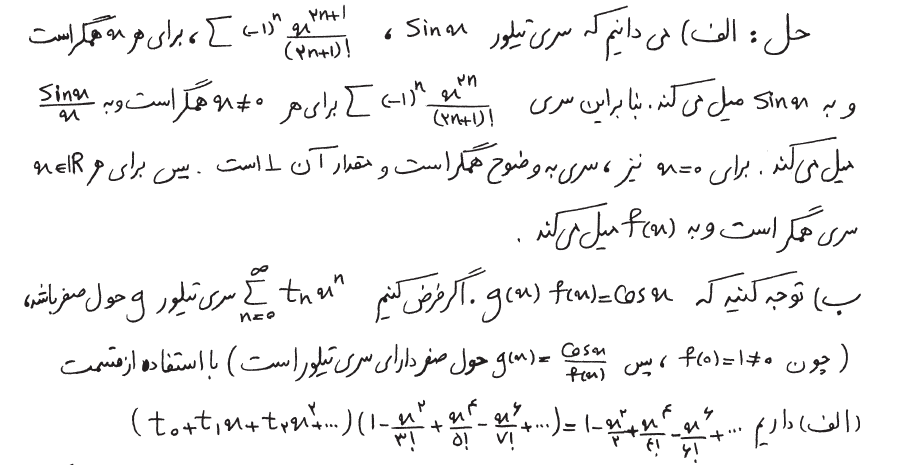 حل : الف) می دانیم که سری تیلور sin x ، ∑ (-1)^n x^(۲n+1)/(۲n+1)! ، برای هر x همگراست
و به sin x میل می کند. بنابراین سری ∑ (-1)^n x^(۲n)/(۲n+1)! برای هر x≠۰ همگراست و به sin x/x
میل می کند. برای x=۰ نیز ، سری به وضوح همگراست و مقدار آن 1 است . پس برای هر x∈ℝ
سری همگراست و به f(x) میل می کند .
ب) توجه کنید که g(x) f(x)=cos x . اگر فرض کنیم ∑_{n=۰}^{∞} t_n x^n سری تیلور g حول صفر باشد،
( چون f(۰)=1≠۰ ، پس g(x)= cos x/f(x) حول صفر دارای سری تیلور است ) با استفاده از قسمت
(الف) داریم (t_۰+t_1x+t_۲x^۲+...)(1-x^۲/۳!+x^۴/۵!-x^۶/۷!+...)=1-x^۲/۲+x^۴/۴!-x^۶/۶!+...